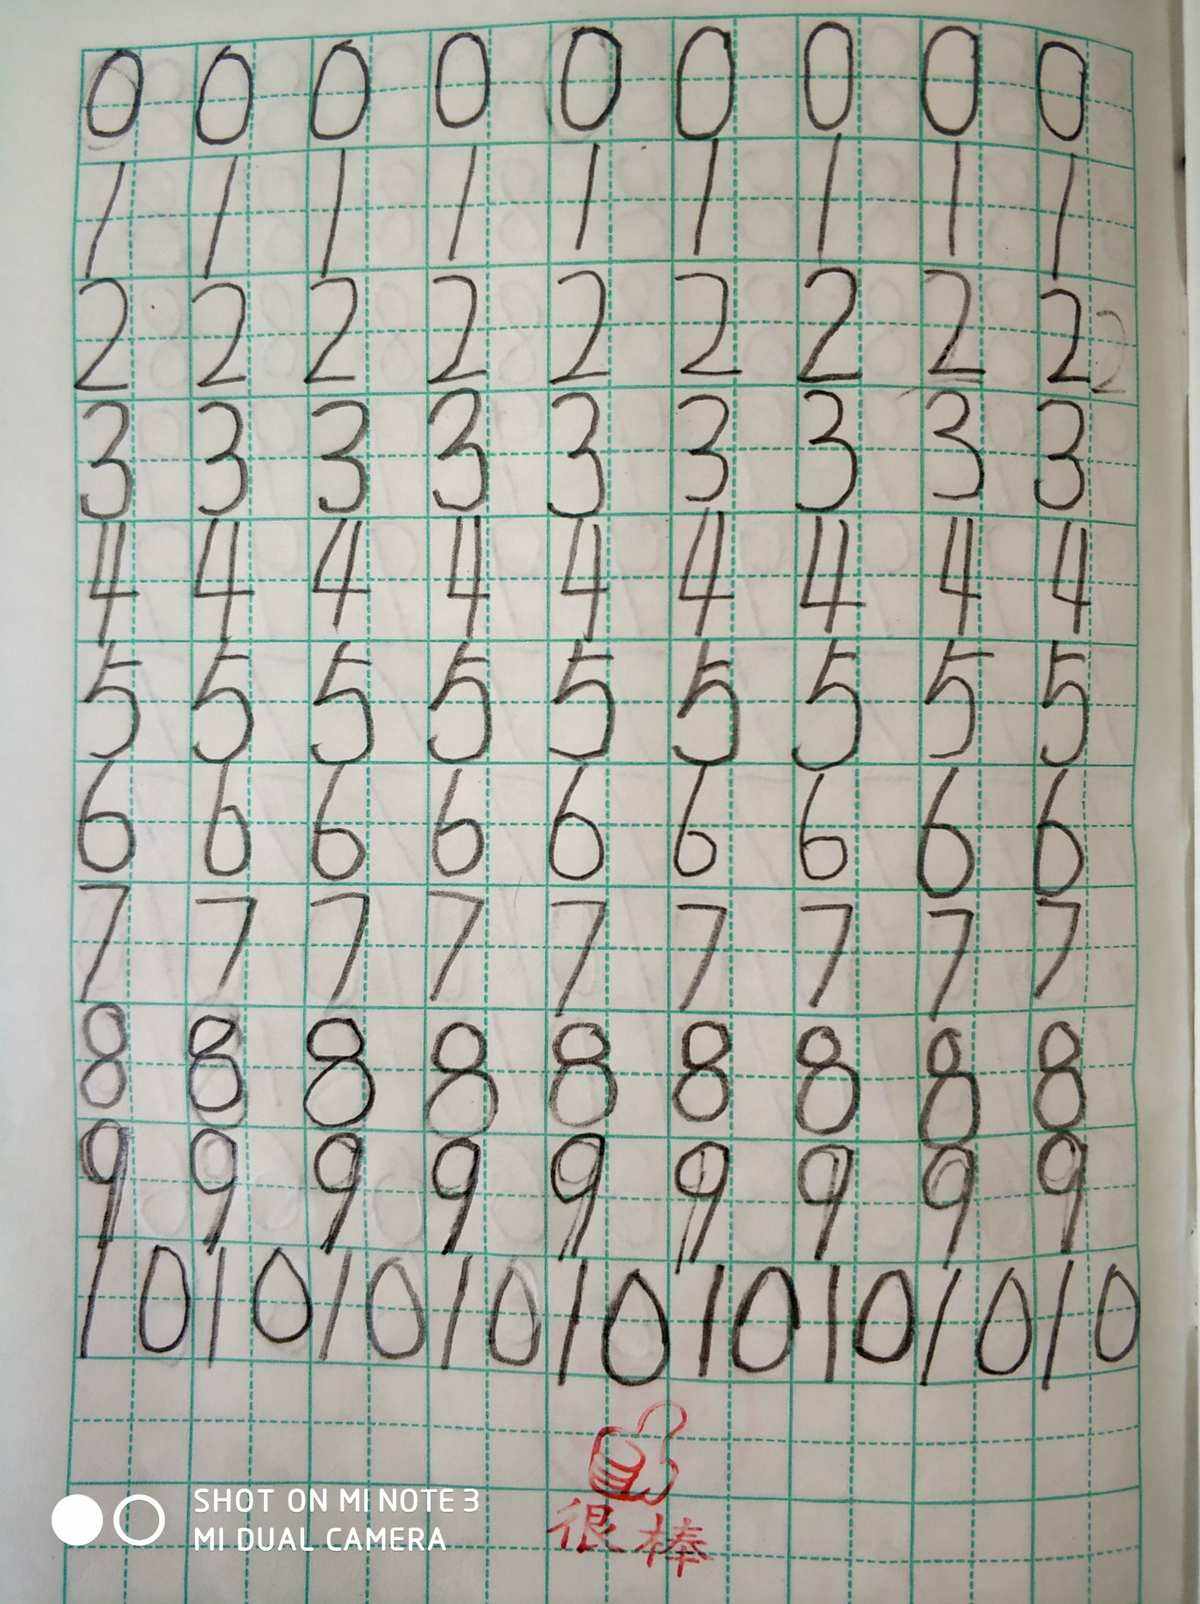 0 0 0 0 0 0 0 0 0
1 1 1 1 1 1 1 1 1
2 2 2 2 2 2 2 2 2 2
3 3 3 3 3 3 3 3 3
4 4 4 4 4 4 4 4 4
5 5 5 5 5 5 5 5 5
6 6 6 6 6 6 6 6 6
7 7 7 7 7 7 7 7 7
8 8 8 8 8 8 8 8 8
9 9 9 9 9 9 9 9 9
10 10 10 10 10 10 10 10 10
很棒
SHOT ON MI NOTE 3
MI DUAL CAMERA